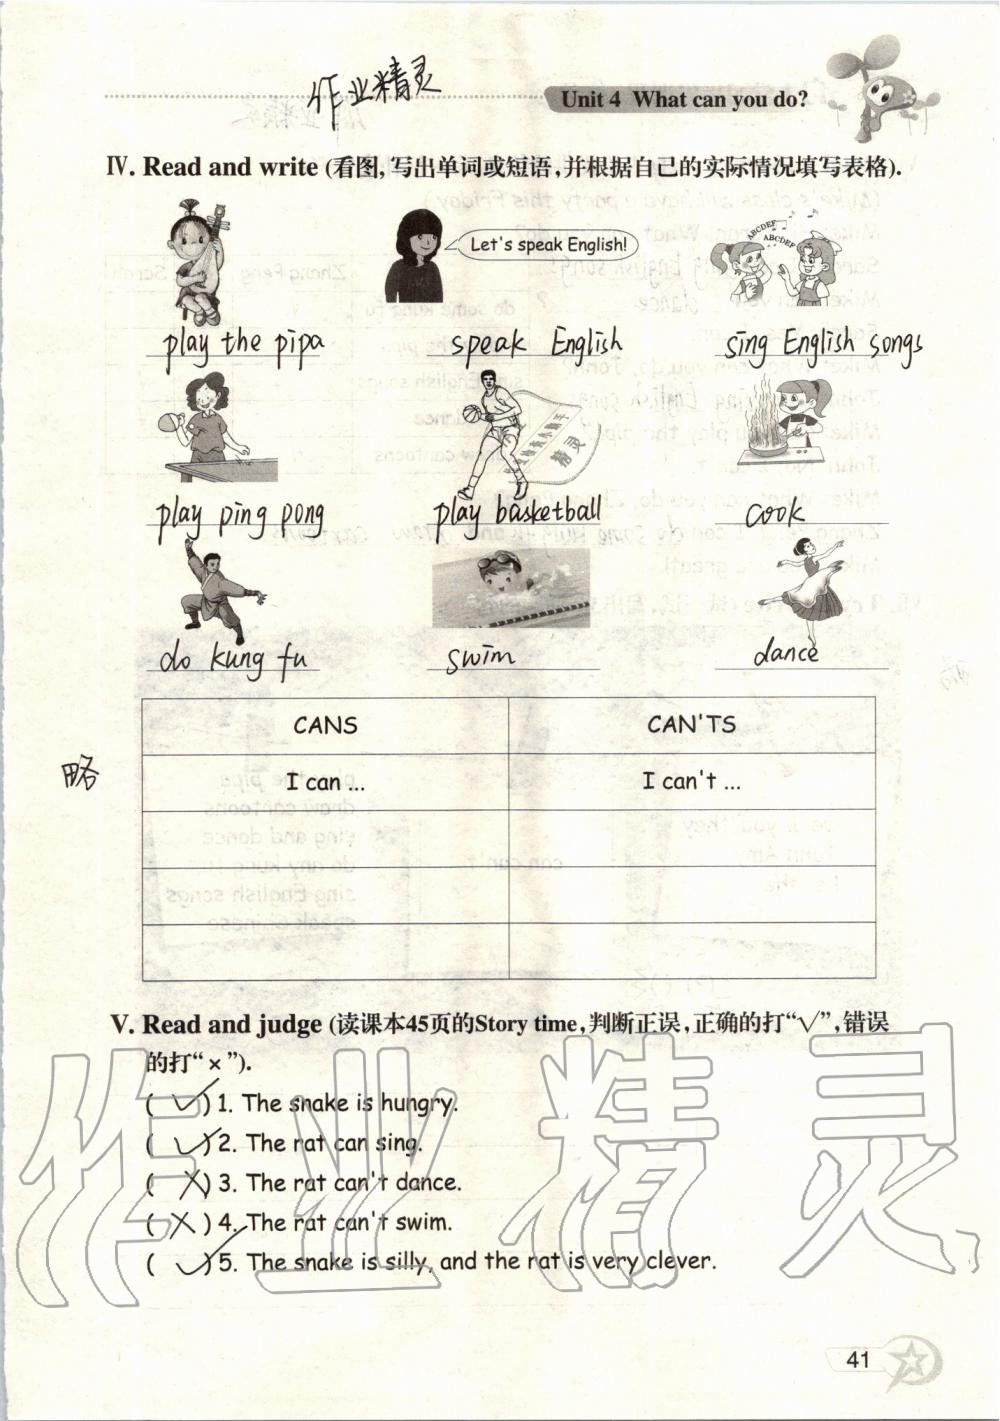 作业精灵
Unit 4 What can you do?
Ⅳ. Read and write (看图,写出单词或短语,并根据自己的实际情况填写表格).
Let's speak English!
ABCDEF
ABCDEF
play the pipa speak English sing English songs
精灵
play ping pong play basketball cook
do kung fu swim dance
CANS CAN'TS
略
I can ... I can't ...
Ⅴ. Read and judge (读课本45页的Story time,判断正误,正确的打“√”,错误
的打“×”).
( √ ) 1. The snake is hungry.
( √ ) 2. The rat can sing.
( X ) 3. The rat can't dance.
( X ) 4. The rat can't swim.
( √ ) 5. The snake is silly, and the rat is very clever.
作业精灵
41